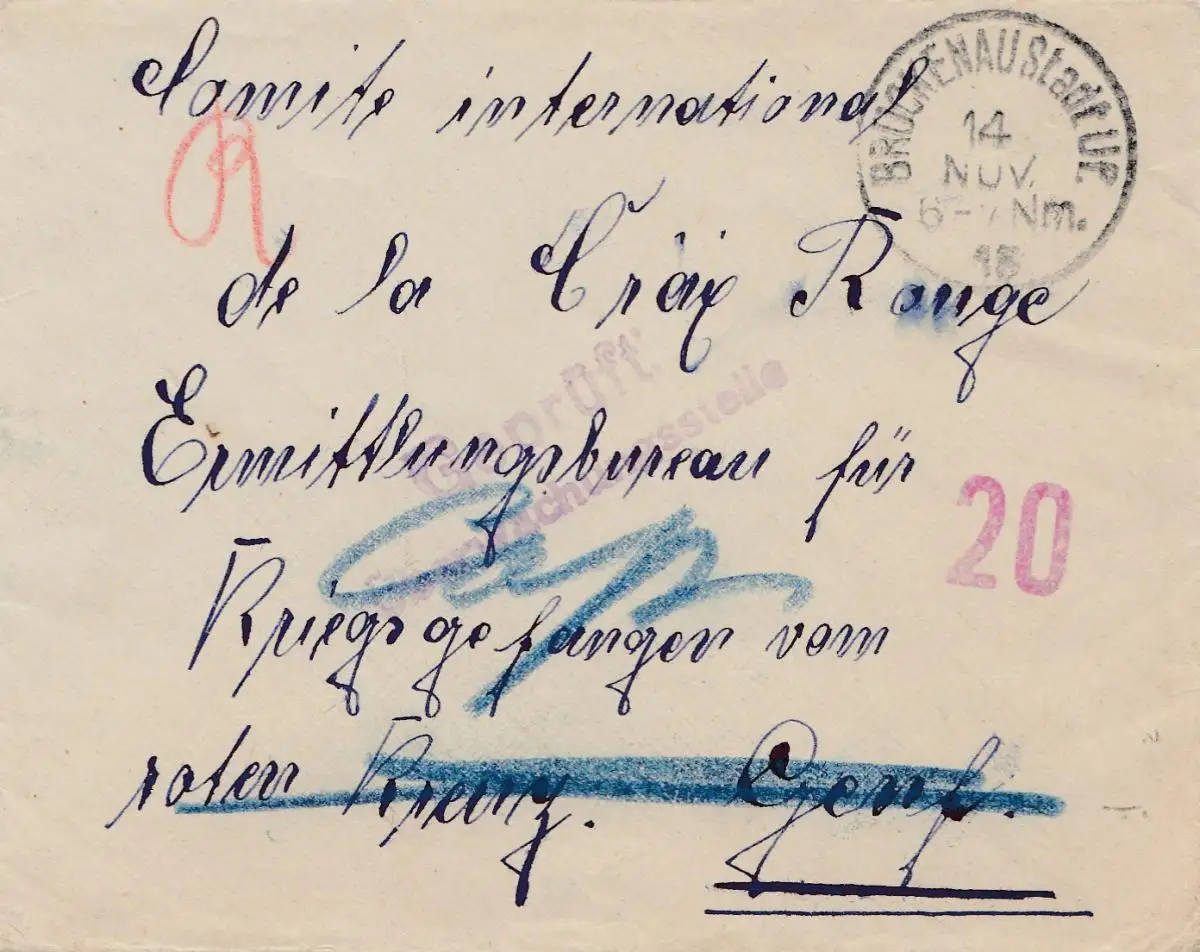 Comite international
de la Cräix Rouge
Ermittlungsbureau für
Kriegsgefangen vom
roten Kreuz. Genf.
BRÜCKENAU Stadt UP.
14
NOV.
6-7 Nm.
18
Geprüft
Überwachungsstelle
20